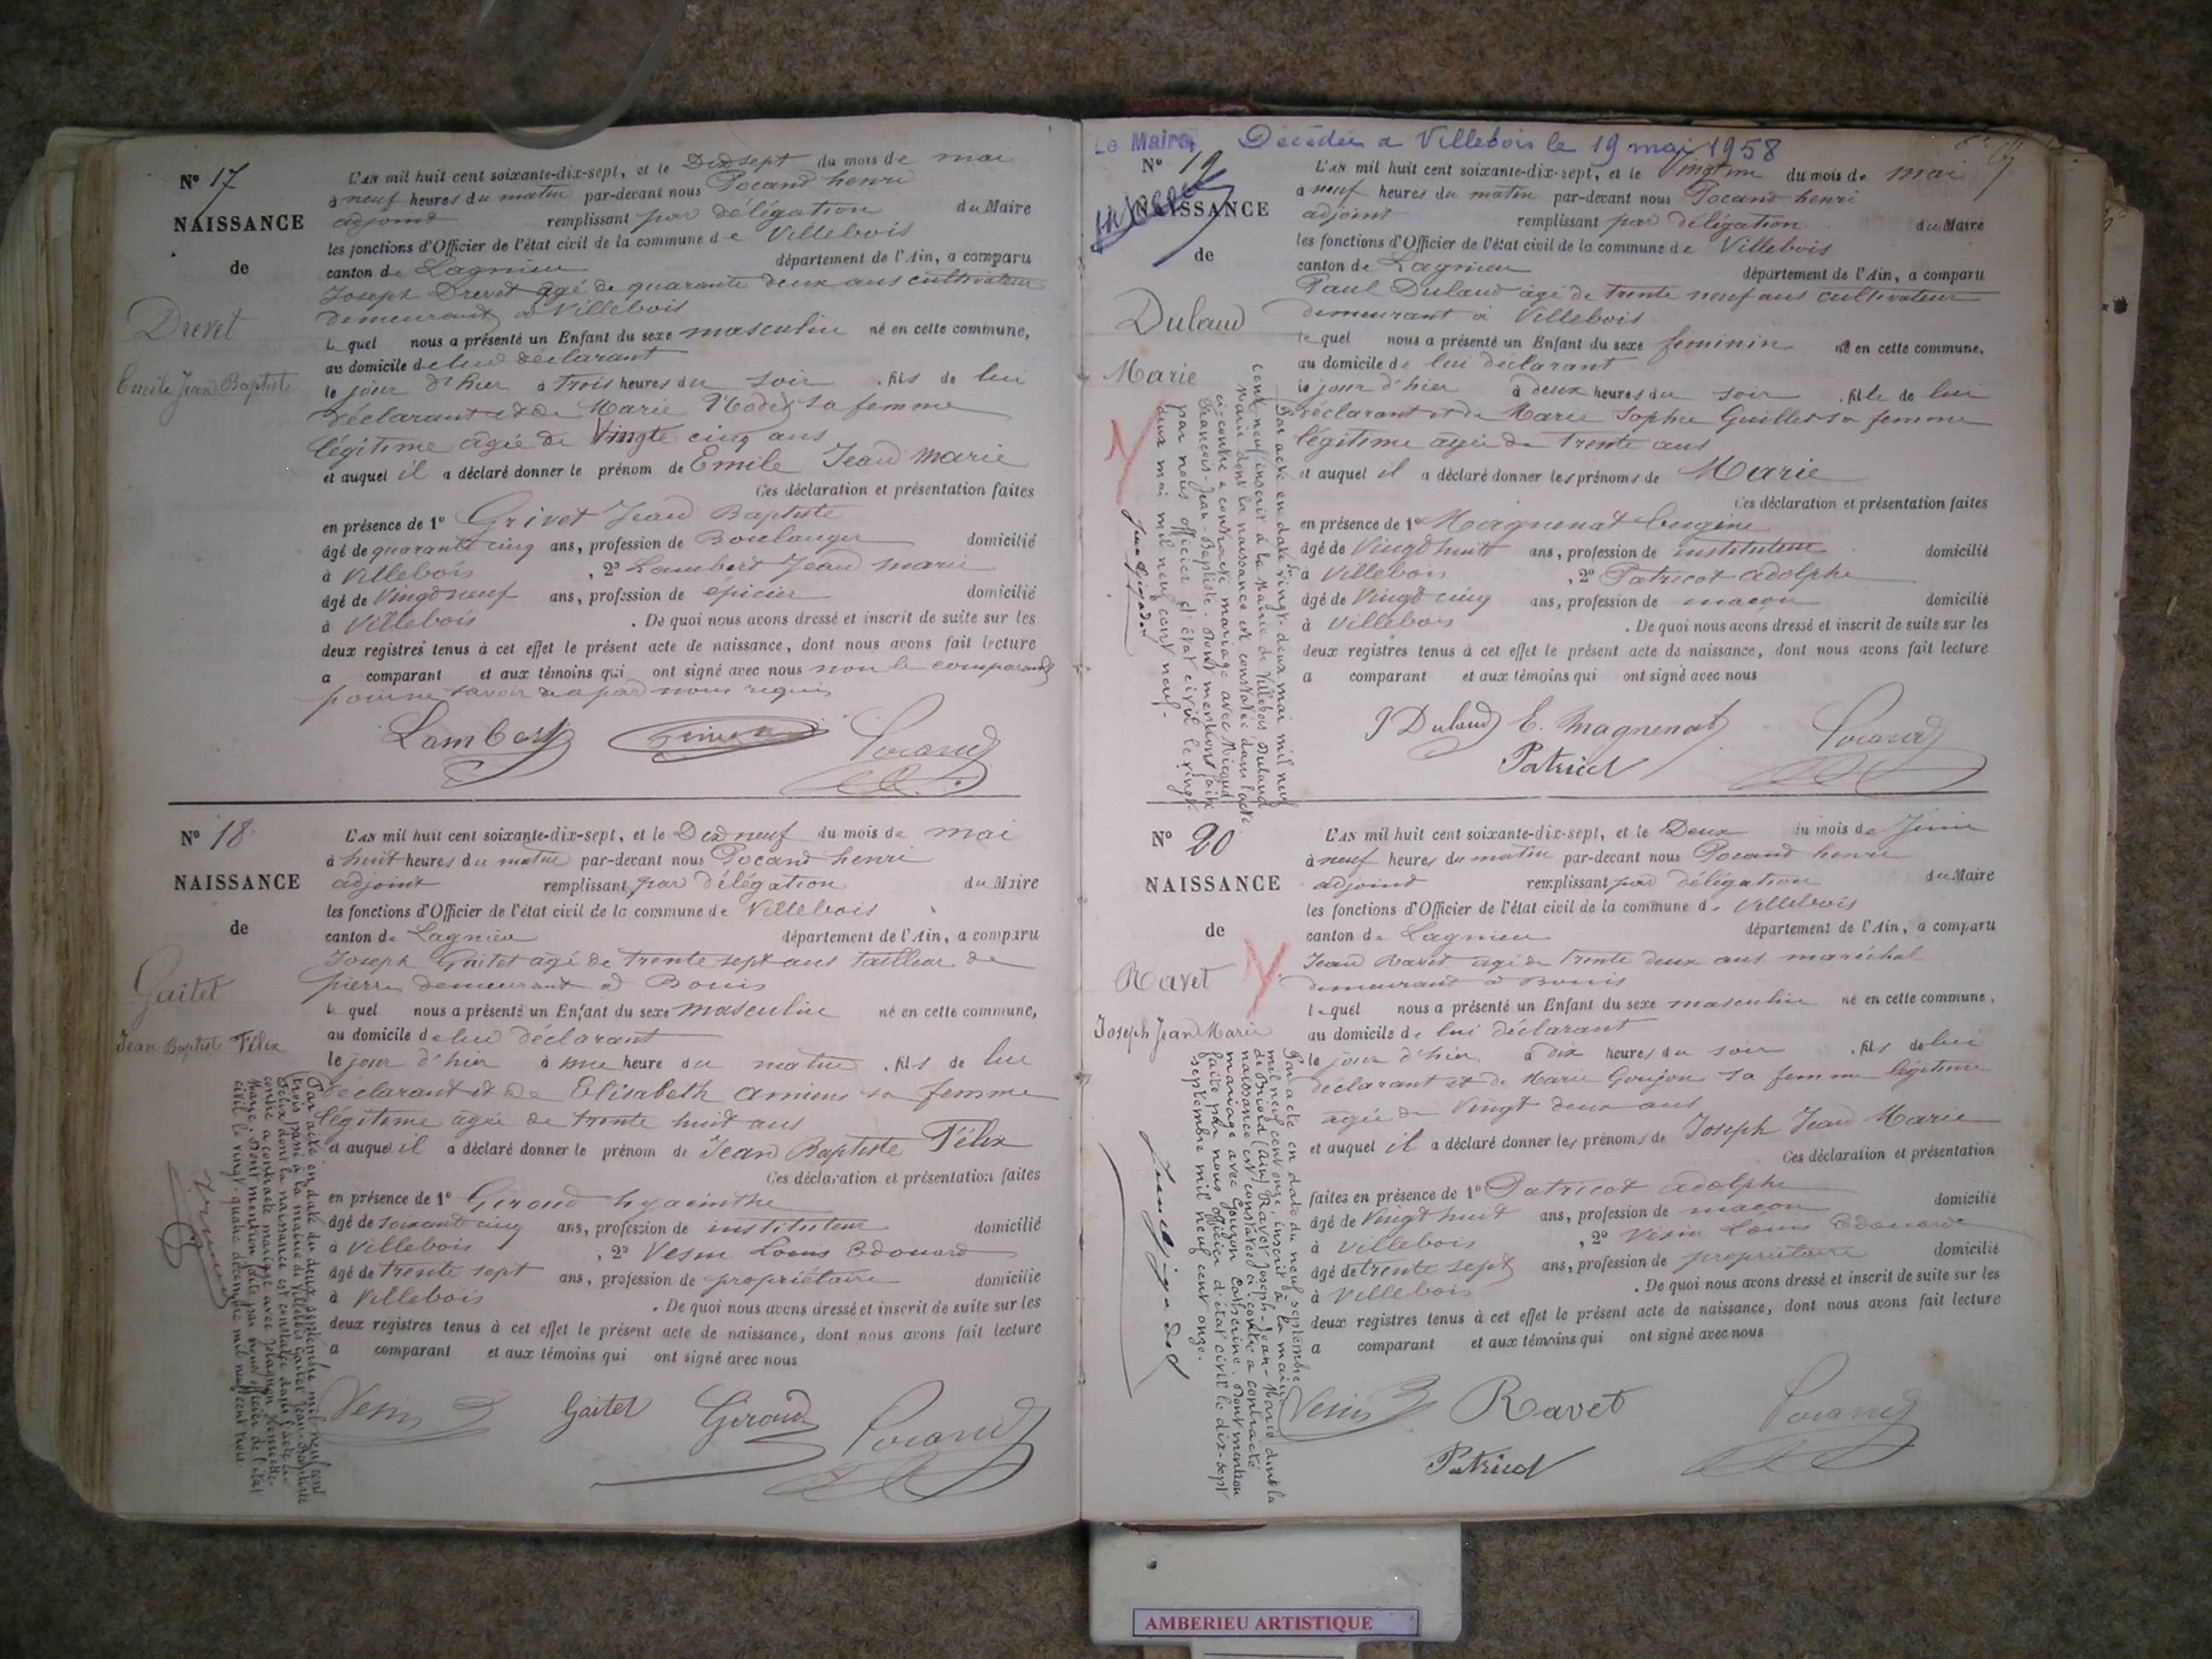 N° 17
NAISSANCE
de
Drevet
Emile Jean Baptiste
L'AN mil huit cent soixante-dix-sept, et le Dix sept du mois de mai
à neuf heures du matin par-devant nous Pocand henri
adjoint remplissant par délégation du Maire
les fonctions d'Officier de l'état civil de la commune de Villebois
canton de Lagnieu département de l'Ain, a comparu
Joseph Drevet agé de quarante deux ans cultivateur
demeurant à Villebois
le quel nous a présenté un Enfant du sexe masculin né en cette commune,
au domicile de lui déclarant
le jour d'hier à trois heures du soir . fils de lui
déclarant et de Marie Rodet sa femme
légitime agée de Vingte cinq ans
et auquel il a déclaré donner le prénom de Emile Jean Marie
Ces déclaration et présentation faites
en présence de 1° Grivet Jean Baptiste
âgé de quarante cinq ans, profession de Boulanger domicilié
à Villebois , 2° Lambert Jean Marie
âgé de Vingt neuf ans, profession de épicier domicilié
à Villebois . De quoi nous avons dressé et inscrit de suite sur les
deux registres tenus à cet effet le présent acte de naissance, dont nous avons fait lecture
a comparant et aux témoins qui ont signé avec nous non le comparant
pour ne savoir de a par nous requis
Lambert Pocand
N° 18
NAISSANCE
de
Gaitet
Jean Baptiste Félix
L'AN mil huit cent soixante-dix-sept, et le Dix neuf du mois de mai
à huit heures du matin par-devant nous Pocand henri
adjoint remplissant par délégation du Maire
les fonctions d'Officier de l'état civil de la commune de Villebois
canton de Lagnieu département de l'Ain, a comparu
Joseph Gaitet agé de trente sept ans tailleur de
pierre demeurant à Bouis
le quel nous a présenté un Enfant du sexe masculin né en cette commune,
au domicile de lui déclarant
le jour d'hier à une heure du matin . fils de lui
déclarant et de Elisabeth Amiens sa femme
légitime agée de trente huit ans
et auquel il a déclaré donner le prénom de Jean Baptiste Félix
Ces déclaration et présentation faites
en présence de 1° Giroud hyacinthe
âgé de soixante cinq ans, profession de instituteur domicilié
à Villebois , 2° Vesin Louis Edouard
âgé de trente sept ans, profession de propriétaire domicilié
à Villebois . De quoi nous avons dressé et inscrit de suite sur les
deux registres tenus à cet effet le présent acte de naissance, dont nous avons fait lecture
a comparant et aux témoins qui ont signé avec nous
Vesin Gaitet Giroud Pocand
Par acte en date du deux septembre mil neuf cent
trois passé à la mairie de Villebois Gaitet Jean-Baptiste
Félix dont la naissance est constatée dans l'acte ci-
contre a contracté mariage avec Plagnon
Marie. Dont mention faite par nous officier de l'état
civil le vingt-quatre décembre mil neuf cent trois.
Le Maire, Décédée à Villebois le 19 mai 1958
N° 19
NAISSANCE
de
Dulaud
Marie
L'AN mil huit cent soixante-dix-sept, et le Vingt un du mois de mai
à neuf heures du matin par-devant nous Pocand henri
adjoint remplissant par délégation du Maire
les fonctions d'Officier de l'état civil de la commune de Villebois
canton de Lagnieu département de l'Ain, a comparu
Paul Dulaud âgé de trente neuf ans cultivateur
demeurant à Villebois
le quel nous a présenté un Enfant du sexe féminin né en cette commune,
au domicile de lui déclarant
le jour d'hier à deux heures du soir . fille de lui
déclarant et de Marie Sophie Guillet sa femme
légitime agée de trente ans
et auquel il a déclaré donner les prénoms de Marie
Ces déclaration et présentation faites
en présence de 1° Magnenat Eugène
âgé de Vingt huit ans, profession de instituteur domicilié
à Villebois , 2° Patricot Adolphe
âgé de Vingt cinq ans, profession de maçon domicilié
à Villebois . De quoi nous avons dressé et inscrit de suite sur les
deux registres tenus à cet effet le présent acte de naissance, dont nous avons fait lecture
a comparant et aux témoins qui ont signé avec nous
P Dulaud E. Magnenat
Patricot Pocand
Par acte en date du vingt-deux mai mil neuf
cent neuf inscrit à la Mairie de Villebois, Dulaud
Marie dont la naissance est constatée dans l'acte
ci-contre a contracté mariage avec Micoud
François-Jean-Baptiste. Dont mention faite
par nous officier d'état civil le vingt-
deux mai mil neuf cent neuf.
N° 20
NAISSANCE
de
Ravet
Joseph Jean Marie
L'AN mil huit cent soixante-dix-sept, et le Deux du mois de Juin
à neuf heures du matin par-devant nous Pocand henri
adjoint remplissant par délégation du Maire
les fonctions d'Officier de l'état civil de la commune de Villebois
canton de Lagnieu département de l'Ain, a comparu
Jean Ravet agé de trente deux ans maréchal
demeurant à Bouis
le quel nous a présenté un Enfant du sexe masculin né en cette commune,
au domicile de lui déclarant
le jour d'hier à dix heures du soir . fils de lui
déclarant et de Marie Goujon sa femme légitime
agée de Vingt deux ans
et auquel il a déclaré donner les prénoms de Joseph Jean Marie
Ces déclaration et présentation
faites en présence de 1° Patricot Adolphe domicilié
âgé de Vingt huit ans, profession de maçon
à Villebois , 2° Vesin Louis Edouard
âgé de trente sept ans, profession de propriétaire domicilié
à Villebois . De quoi nous avons dressé et inscrit de suite sur les
deux registres tenus à cet effet le présent acte de naissance, dont nous avons fait lecture
a comparant et aux témoins qui ont signé avec nous
Vesin Ravet Pocand
Patricot
Par acte en date du neuf septembre
mil neuf cent onze, inscrit à la mairie
de Briord (Ain) Ravet Joseph-Jean-Marie dont la
naissance est constatée ci-contre a contracté
mariage avec Gouzon Catherine. Dont mention
faite par nous officier d'état civil le dix-sept
septembre mil neuf cent onze.
AMBERIEU ARTISTIQUE